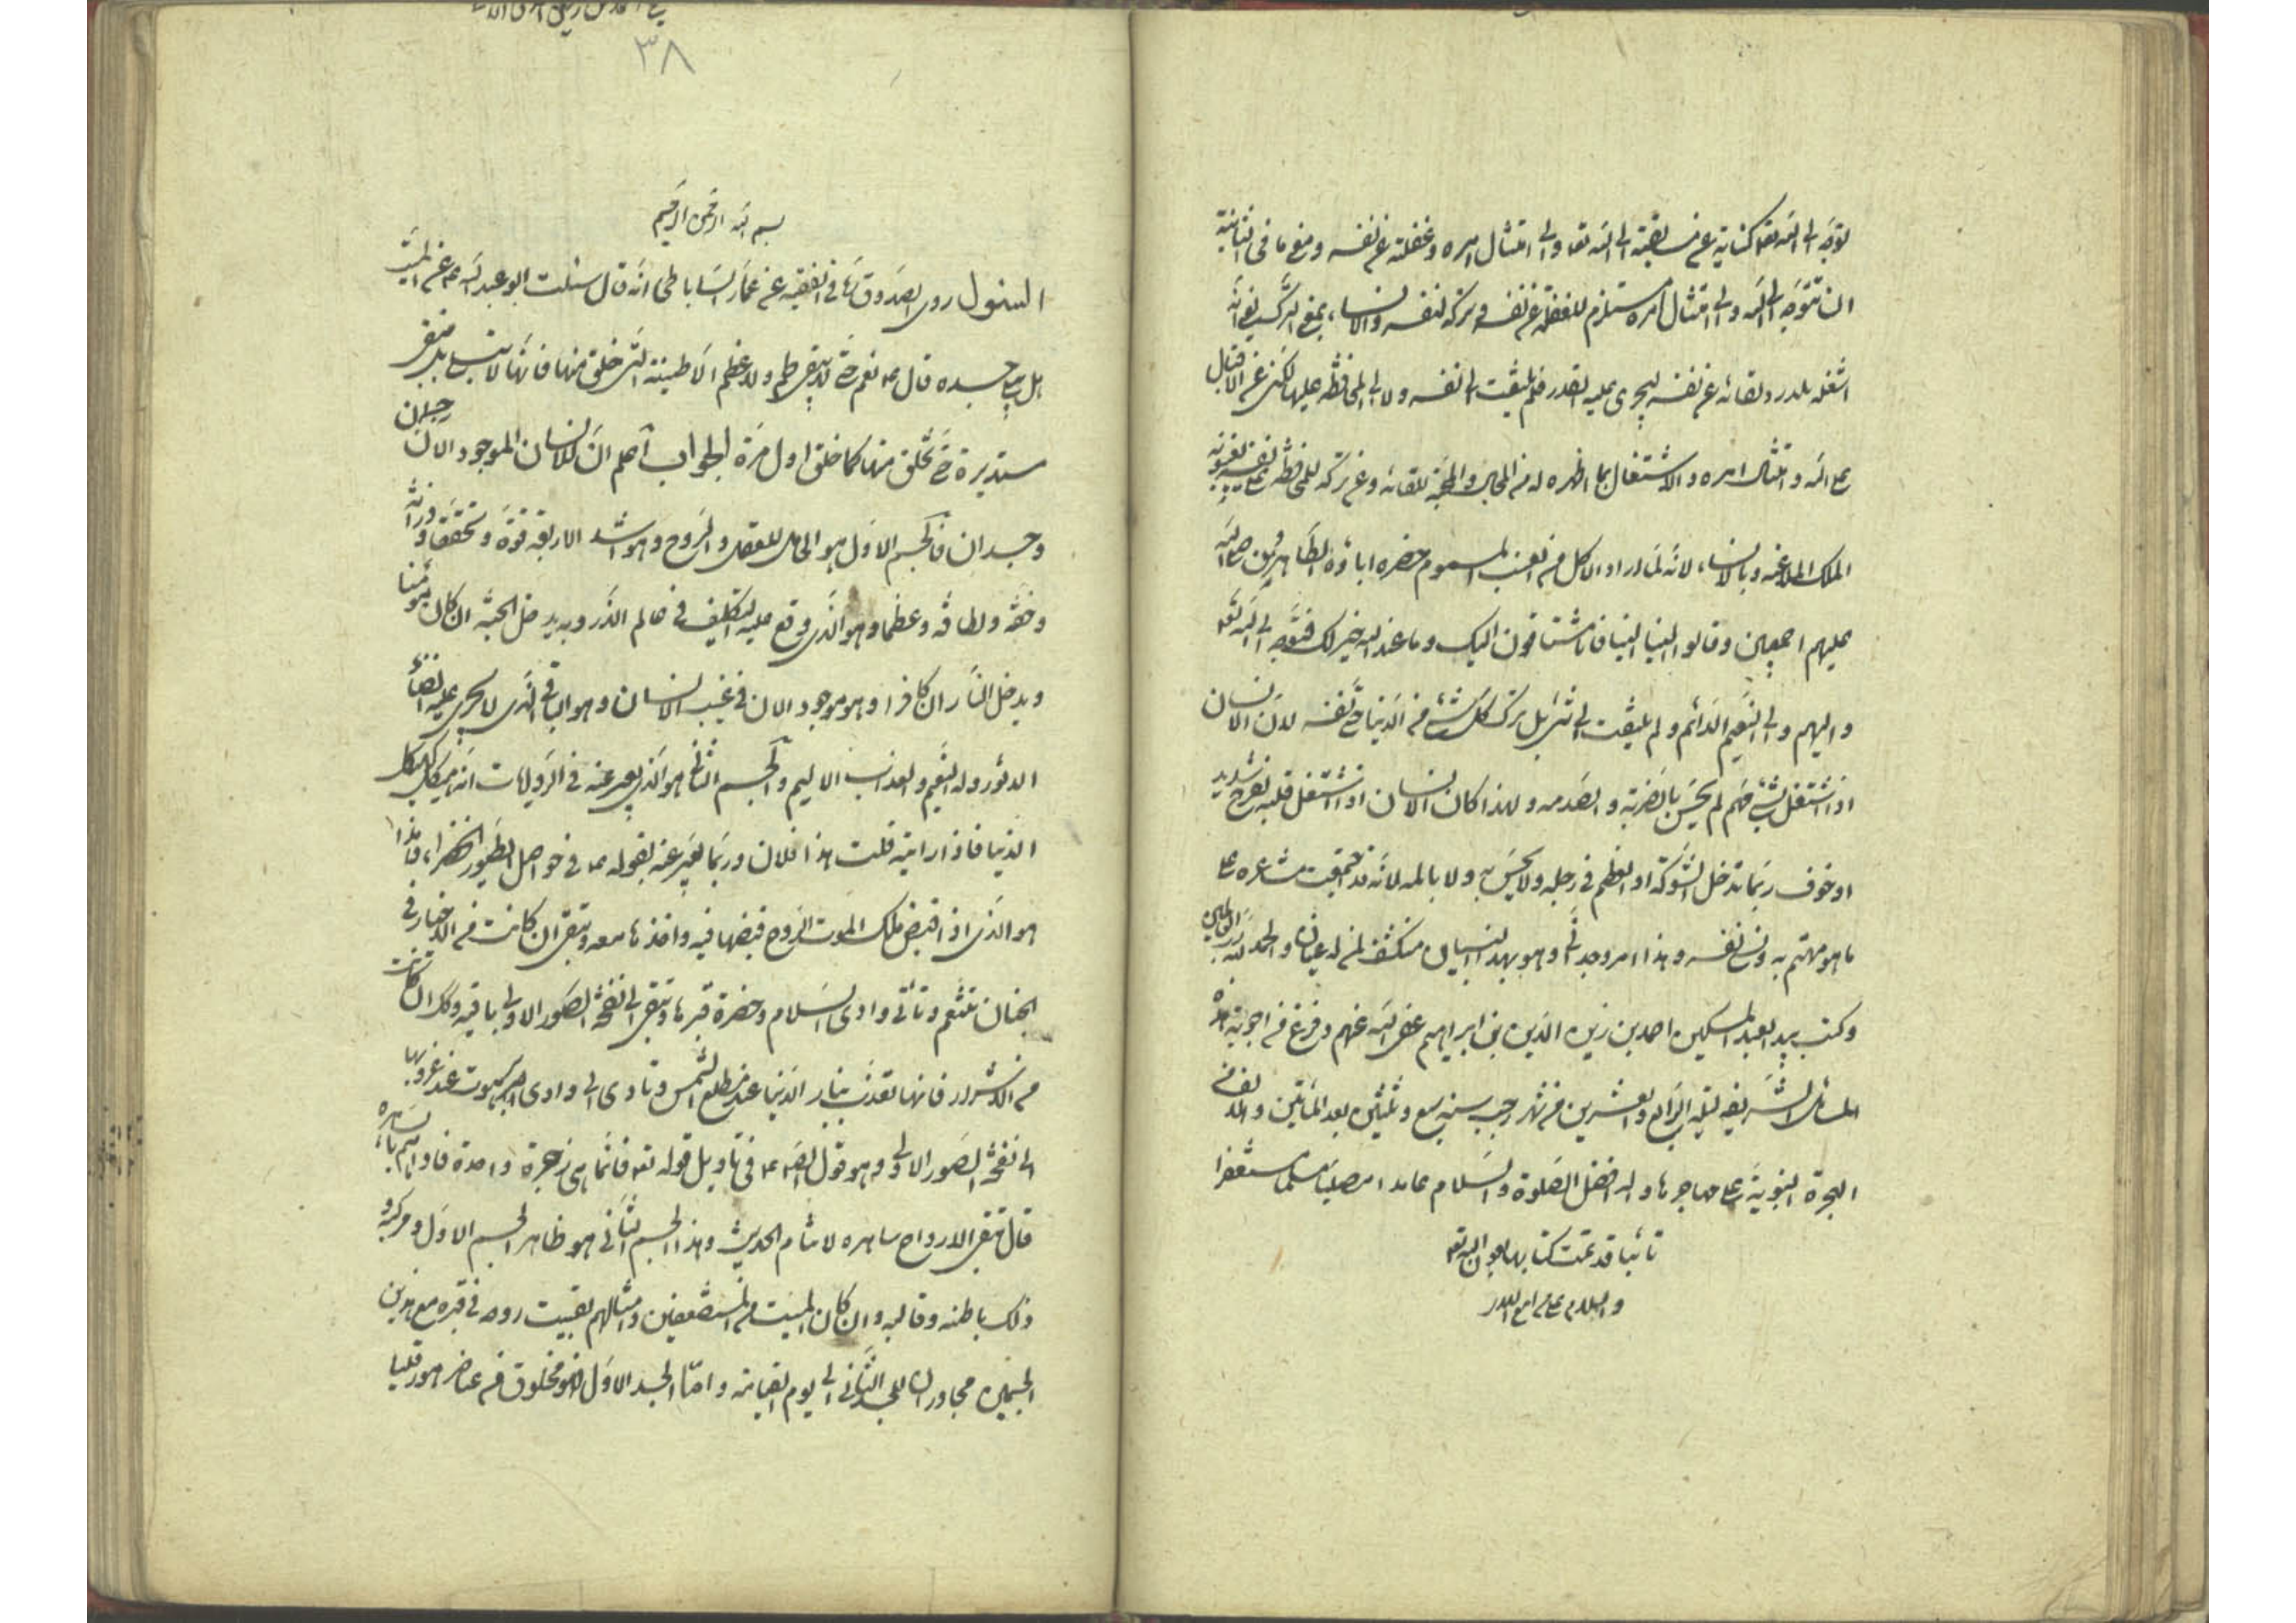 توجه الى الله تعالى كناية عن مسابقته الى الله تعه والى امتثال امره وغفلته عن نفسه ومنع ما فى الثانية
ان التوجه الى الله والى امتثال امره مستلزم للغفلة عن نفسه وتركه لنفسه والانساء بمعنى الترك يعنى انه
اشغله بلذة ولقائه عن نفسه ليجرى عليه القدر فلم يلتفت الى نفسه ولا الى المحافظة عليها لكن عن الاقبال
على الله وامتثال امره والاشتغال بما اظهره له من المحبة للقائه وعن تركه للمحافظة على نفسه
الملك المحدث عنه وبالانساء لانه لما اراد الاكل من العنب المسموم حضره اباؤه الطاهرون صلى الله
عليهم اجمعين وقالوا الينا الينا فانا مشتاقون اليك وما عند الله خير لك فتوجه الى الله تعه
واليهم والى النعيم الدائم ولم يلتفت الى شئ بل ترك كل شئ من الدنيا حتى نفسه لان الانسان
اذا اشتغل بشئ مهم لم يحس بالضربة والصدمة ولهذا كان الانسان اذا اشتغل قلبه بفرح شديد
او خوف ربما تدخل الشوكة او العظم فى رجله ولا يحس به ولا بالمه لانه قد اجتمعت مشاعره على
ما هو مهتم به ونسى نفسه وهذا امر وجدانى وهو بهذا البيان منكشف لمن له عينان والحمد لله رب العالمين
وكتب بيده العبد المسكين احمد بن زين الدين بن ابراهيم عفى الله عنهم وفرغ من اجوبة هذه
المسائل الشريفة ليلة الرابع والعشرين من شهر رجب سنة سبع وثلثين بعد المأتين والالف من
الهجرة النبوية على مهاجرها واله افضل الصلوة والسلام حامدا مصليا مسلما مستغفرا
تائبا قد تمت كتابتها بعون الله تعه
والسلام على من اتبع الهدى
٣٨
بسم الله الرحمن الرحيم
السئول روى الصدوق ره فى الفقيه عن عمار الساباطى انه قال سئلت ابو عبد الله ع عن الميت
هل يبلى جسده قال ع نعم حتى لا يبقى لحم ولا عظم الا طينته التى خلق منها فانها لا تبلى بل تبقى
مستديرة حتى يخلق منها كما خلق اول مرة الجواب اعلم ان للانسان الموجود الان جسمان
وجسدان فالجسم الاول هو الحامل للعقل والروح وهو اشد الاربعة قوة وتحققا ووزانة
وخفة ولطافة وعظما وهو الذى وقع عليه التكليف فى عالم الذر وبه يدخل الجنة ان كان مؤمنا
ويدخل النار ان كان كافرا وهو موجود الان فى غيب الانسان وهو الباقى الذى لا يجرى عليه الفناء
الدثور وله النعيم والعذاب الاليم والجسم الثانى هو الذى يعبر عنه فى الروايات انه هيكل كهيكل
الدنيا فاذا رايته قلت هذا فلان وربما يعبر عنه بقوله ع فى حواصل الطيور الخضراء وهذا
هو الذى اذا قبض ملك الموت الروح قبضها فيه واخذها معه وتبقى ان كانت من الاخيار فى
الجنان تتنعم وتأتى وادى السلام وحضرة قبرها وتبقى الى نفخة الصور الاولى باقية وكذا ان كانت
من الاشرار فانها تعذب بنار الدنيا عند مطلع الشمس وتاوى الى وادى برهوت عند غروبها
الى نفخة الصور الاولى وهو قول الصادق ع فى تاويل قوله تعه فانما هى زجرة واحدة فاذا هم بالساهرة
قال تبقى الارواح ساهرة لا تنام الحديث وهذا الجسم الثانى هو ظاهر الجسم الاول ومركبه و
ذلك باطنه وقالبه وان كان الميت من المستضعفين وامثالهم بقيت روحه فى قبره مع هذين
الجسمين مجاوران للجسد الثانى الى يوم القيامة واما الجسد الاول فهو مخلوق من عناصر هورقليا